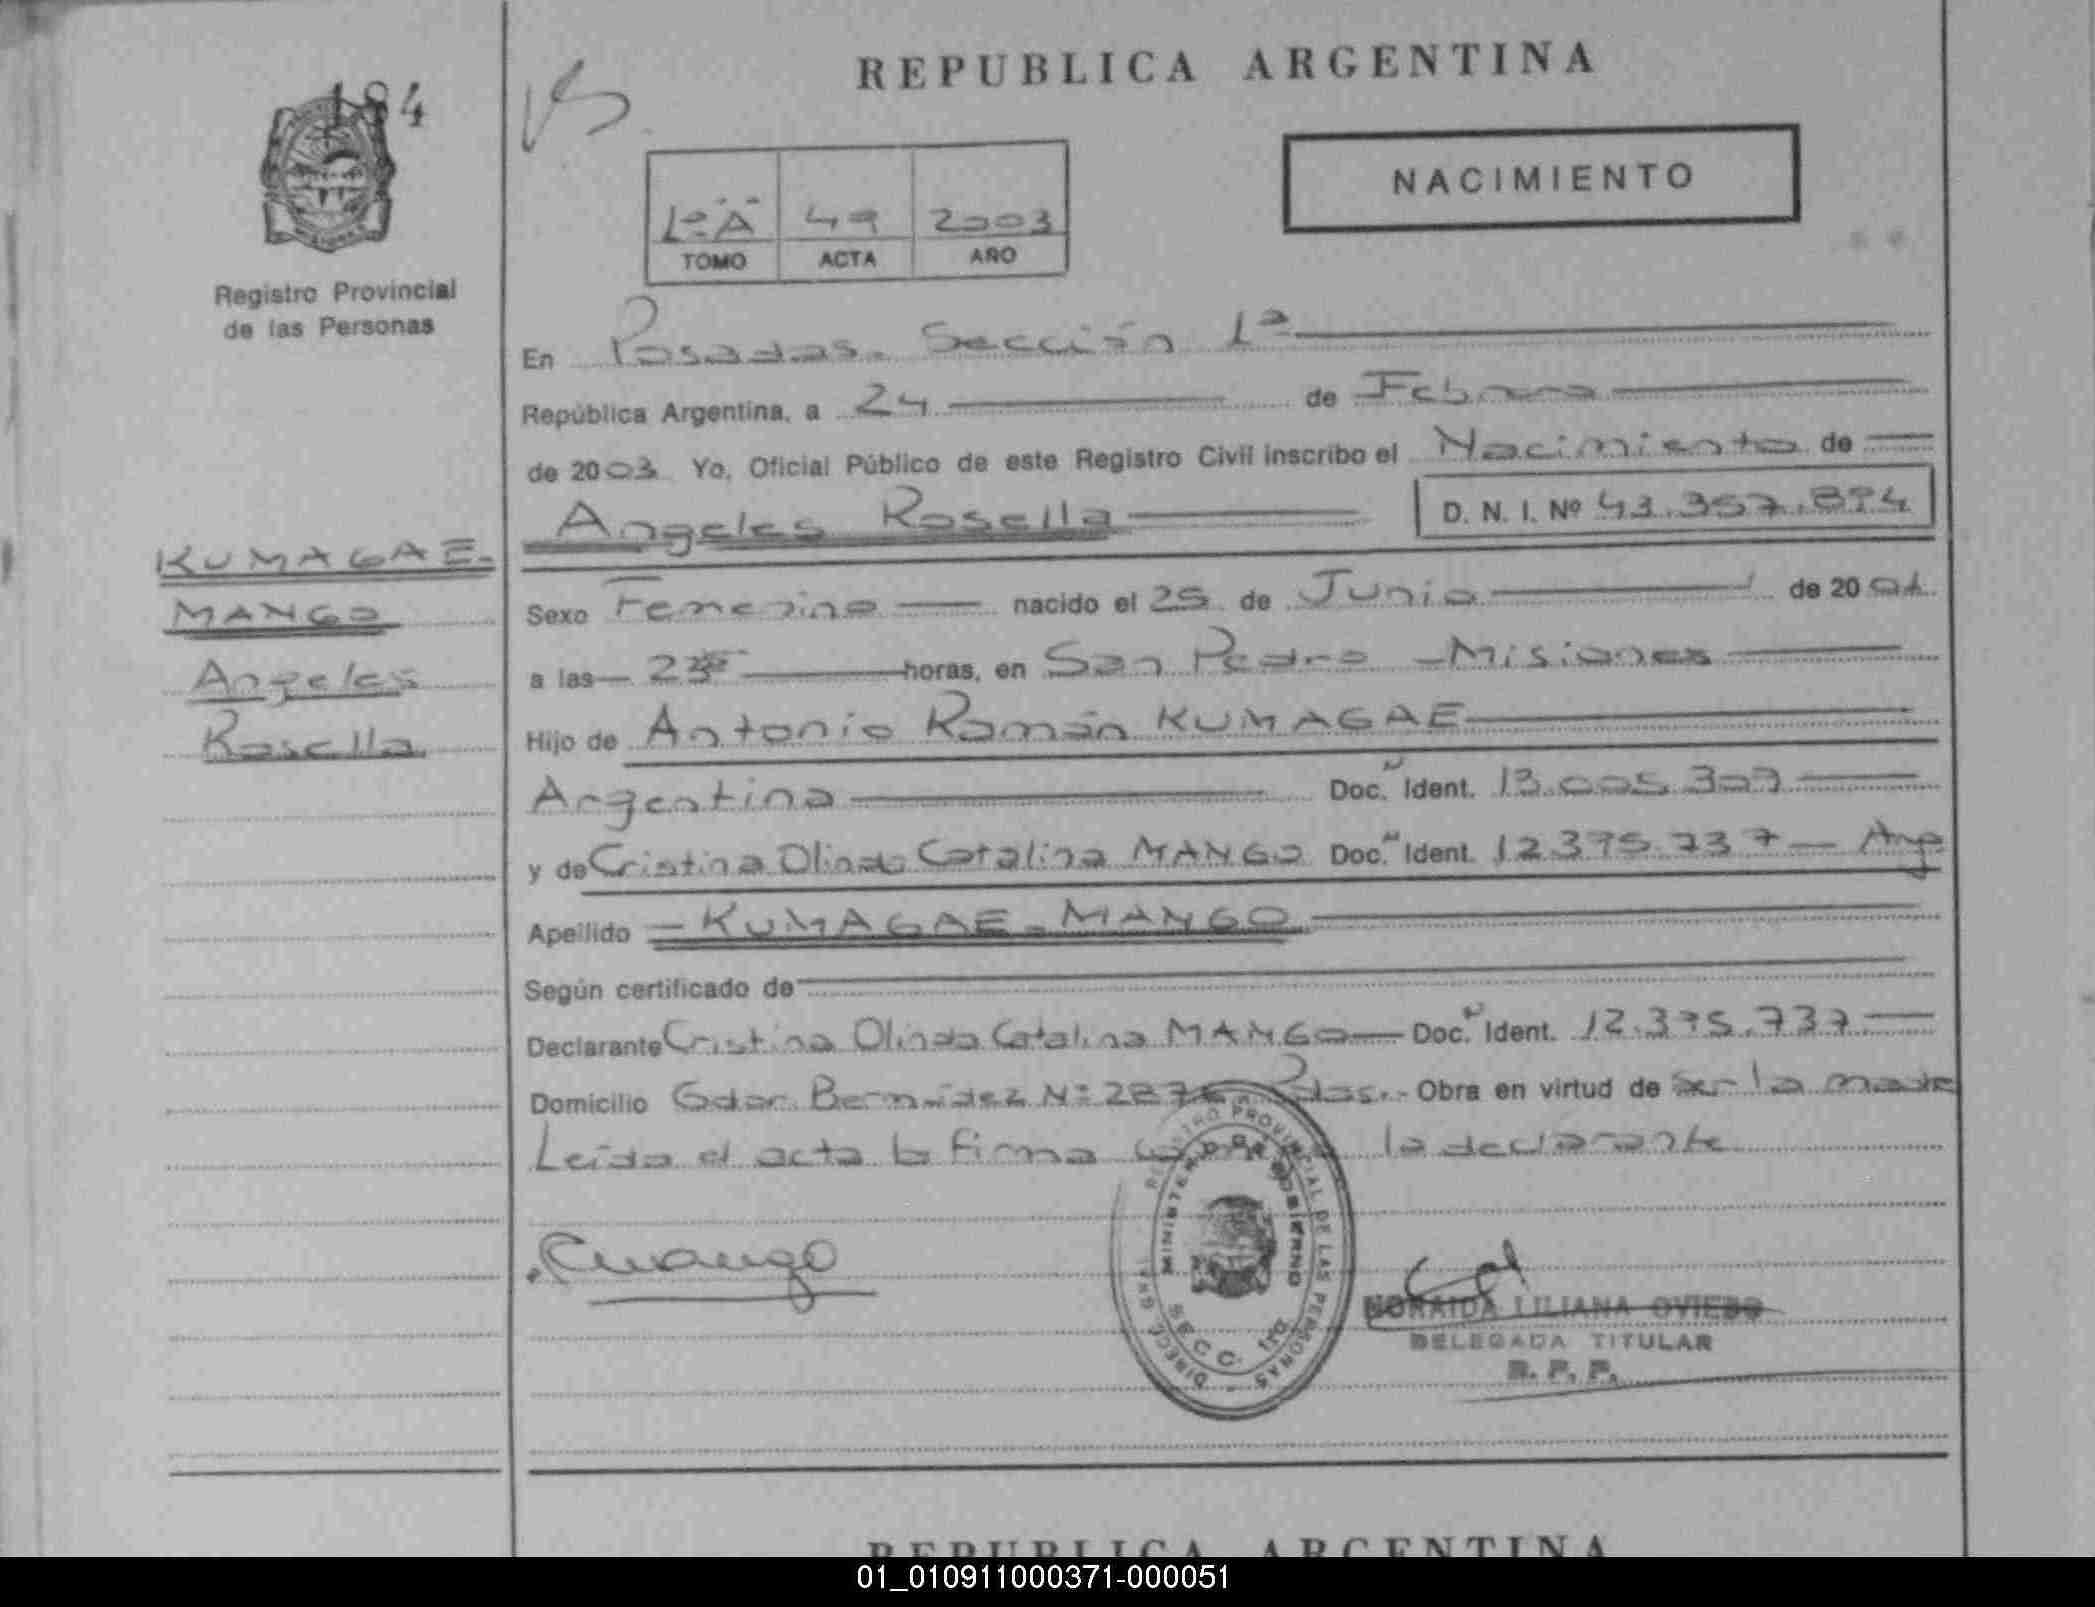 194
REPUBLICA ARGENTINA
NACIMIENTO
1º "A" 49 2003
TOMO ACTA AÑO
Registro Provincial
de las Personas
En Posadas. Sección 1ª
República Argentina, a 24 de Febrero
de 2003 Yo, Oficial Público de este Registro Civil inscribo el Nacimiento de
Angeles Rosella D. N. I. Nº 43.357.894
KUMAGAE-
MANGO
Angeles
Rosella
Sexo Femenino nacido el 25 de Junio de 2001
a las horas, en San Pedro - Misiones
Hijo de Antonio Ramón KUMAGAE
Argentino Doc. Ident. 13.005.307
y de Cristina Olinda Catalina MANGO Doc. Ident. 12.395.737 - Arg
Apellido - KUMAGAE - MANGO
Según certificado de
Declarante Cristina Olinda Catalina MANGO Doc. Ident. 12.395.737
Domicilio Bermúdez Nº Pdas. - Obra en virtud de ser la madre
Leida el acta la firma la declarante
Cmango
REGISTRO PROVINCIAL DE LAS PERSONAS - DIRECC. GRAL.
MINISTERIO DE GOBIERNO
SECC. 1ra
NORAIDA LILIANA OVIEDO
DELEGADA TITULAR
R. P. P.
REPUBLICA ARGENTINA
01_010911000371-000051